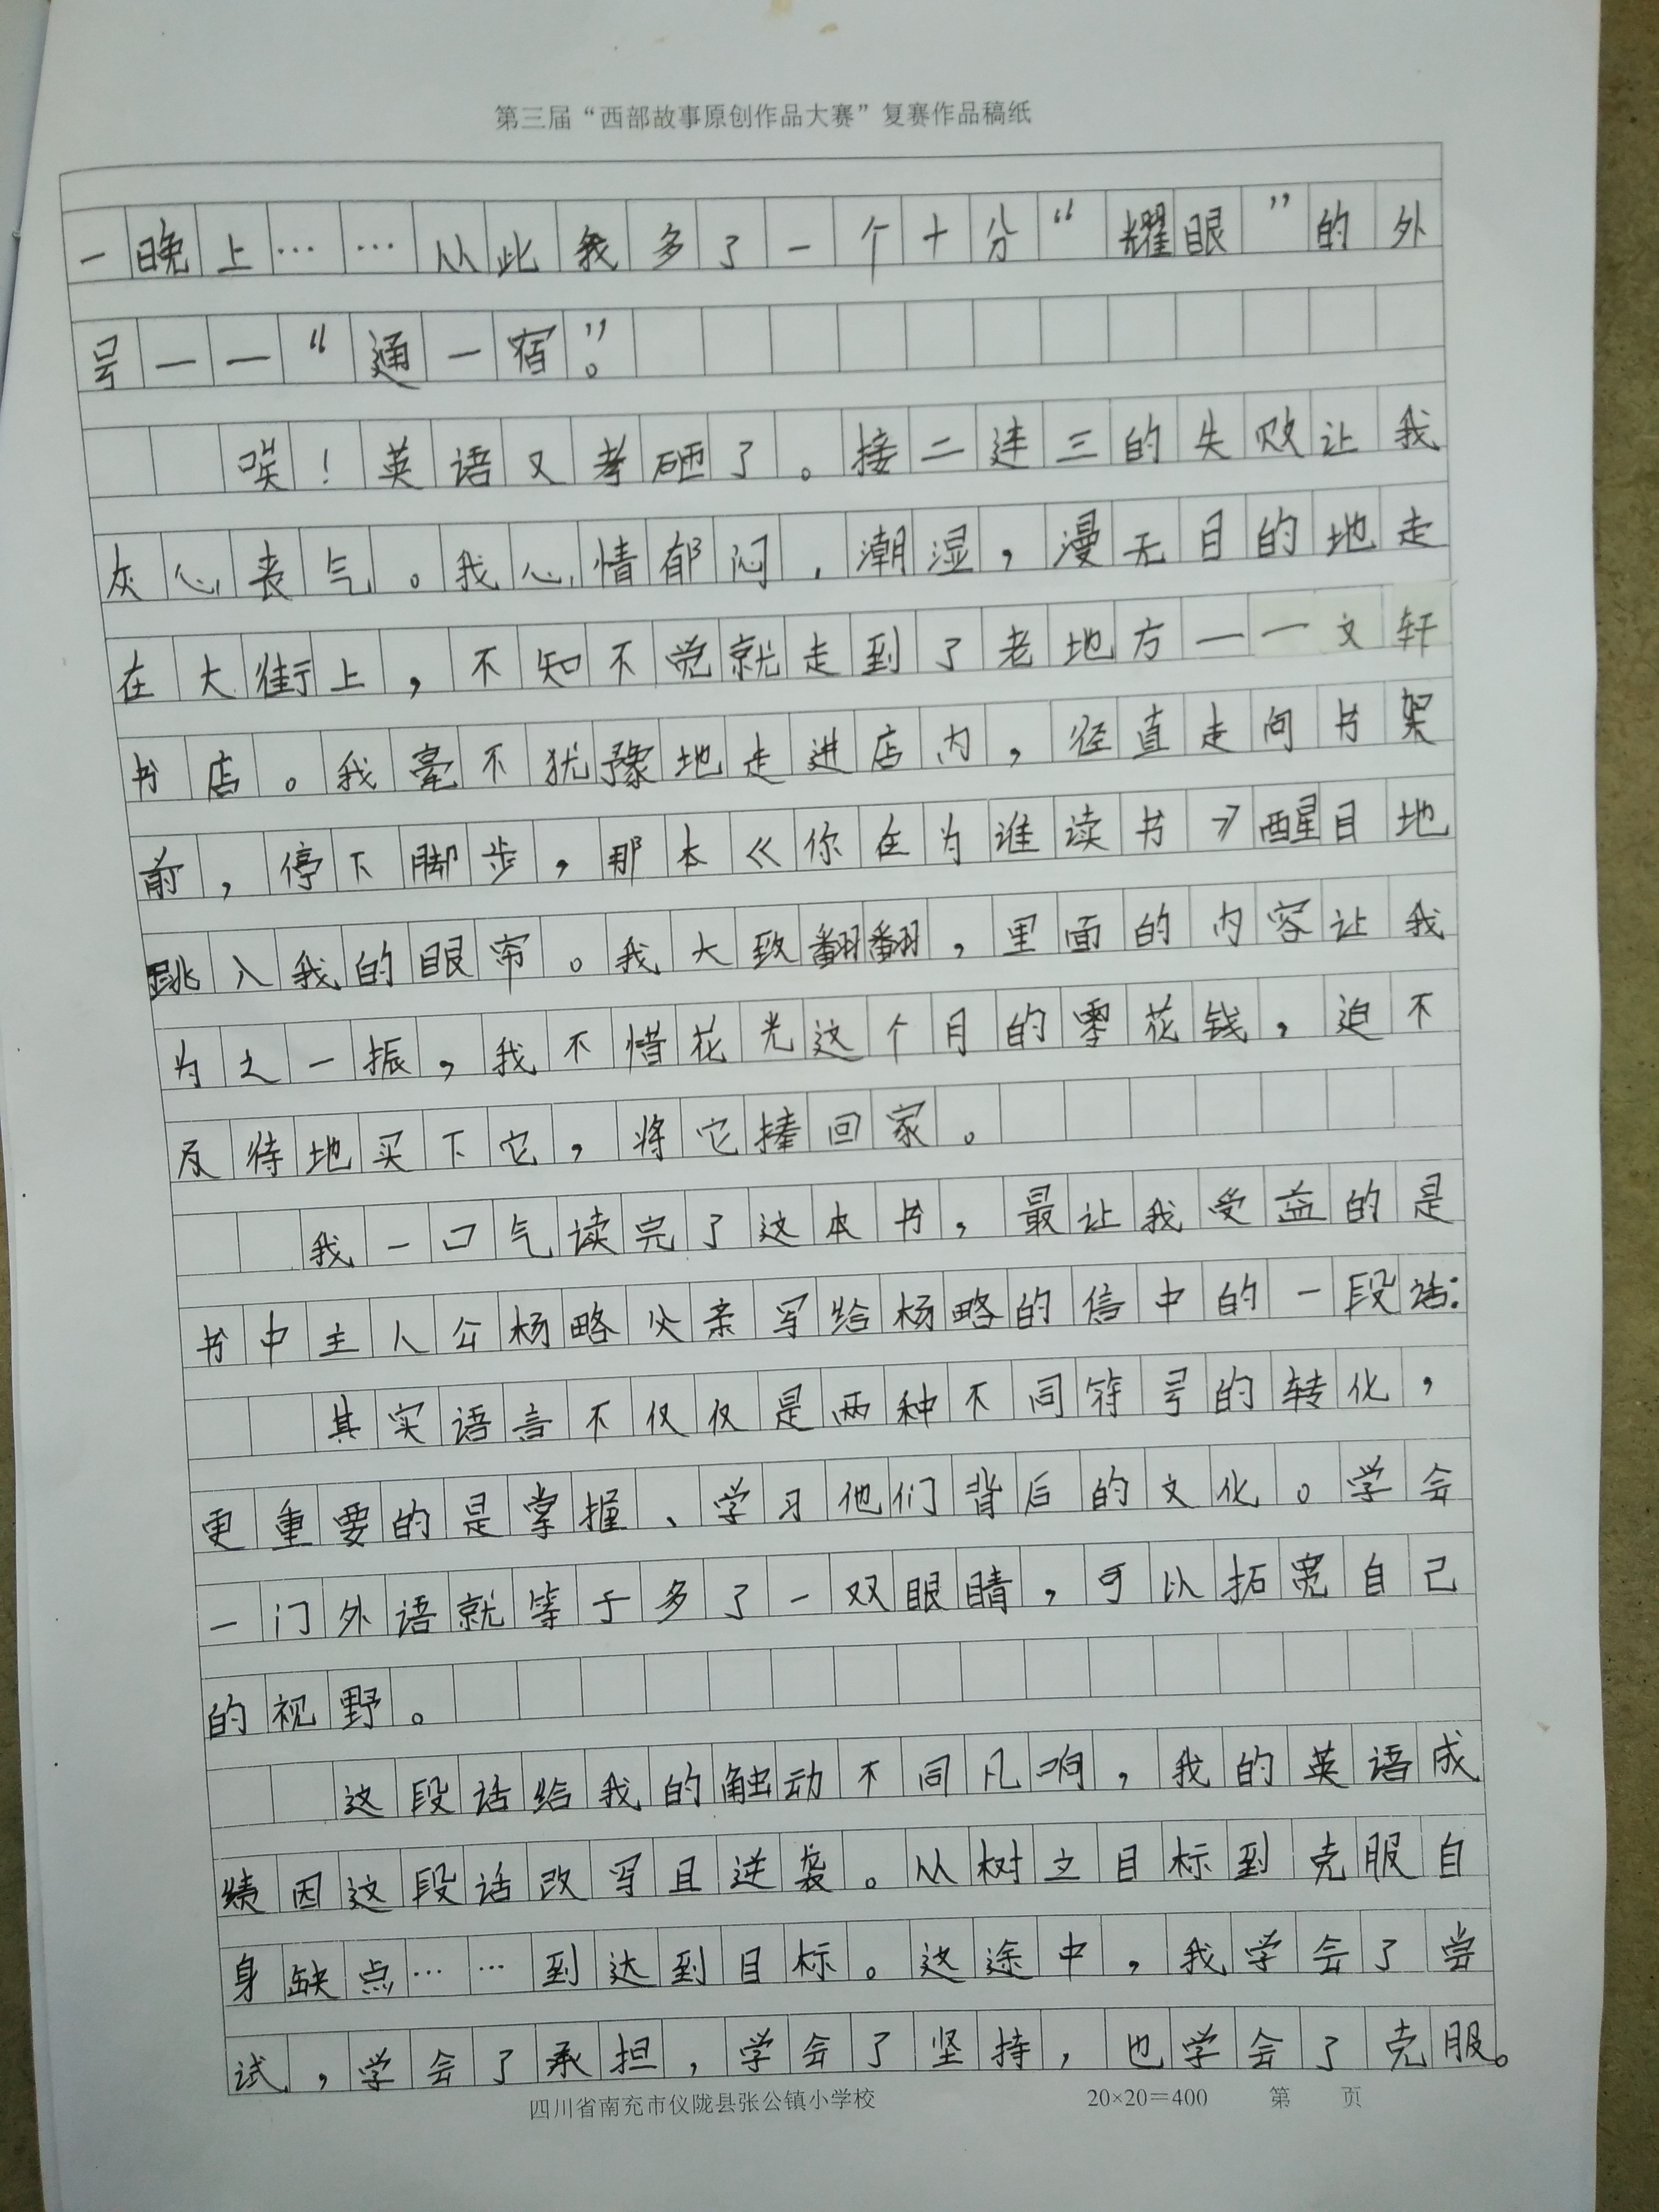 第三届“西部故事原创作品大赛”复赛作品稿纸
一晚上……从此我多了一个十分“耀眼”的外
号——“通一宿”。
唉！英语又考砸了。接二连三的失败让我
灰心丧气。我心情郁闷，潮湿，漫无目的地走
在大街上，不知不觉就走到了老地方——文轩
书店。我毫不犹豫地走进店内，径直走向书架
前，停下脚步，那本《你在为谁读书》醒目地
跳入我的眼帘。我大致翻翻，里面的内容让我
为之一振，我不惜花光这个月的零花钱，迫不
及待地买下它，将它捧回家。
我一口气读完了这本书，最让我受益的是
书中主人公杨略父亲写给杨略的信中的一段话：
其实语言不仅仅是两种不同符号的转化，
更重要的是掌握、学习他们背后的文化。学会
一门外语就等于多了一双眼睛，可以拓宽自己
的视野。
这段话给我的触动不同凡响，我的英语成
绩因这段话改写且逆袭。从树立目标到克服自
身缺点……到达到目标。这途中，我学会了尝
试，学会了承担，学会了坚持，也学会了克服。
四川省南充市仪陇县张公镇小学校 20×20=400 第 页